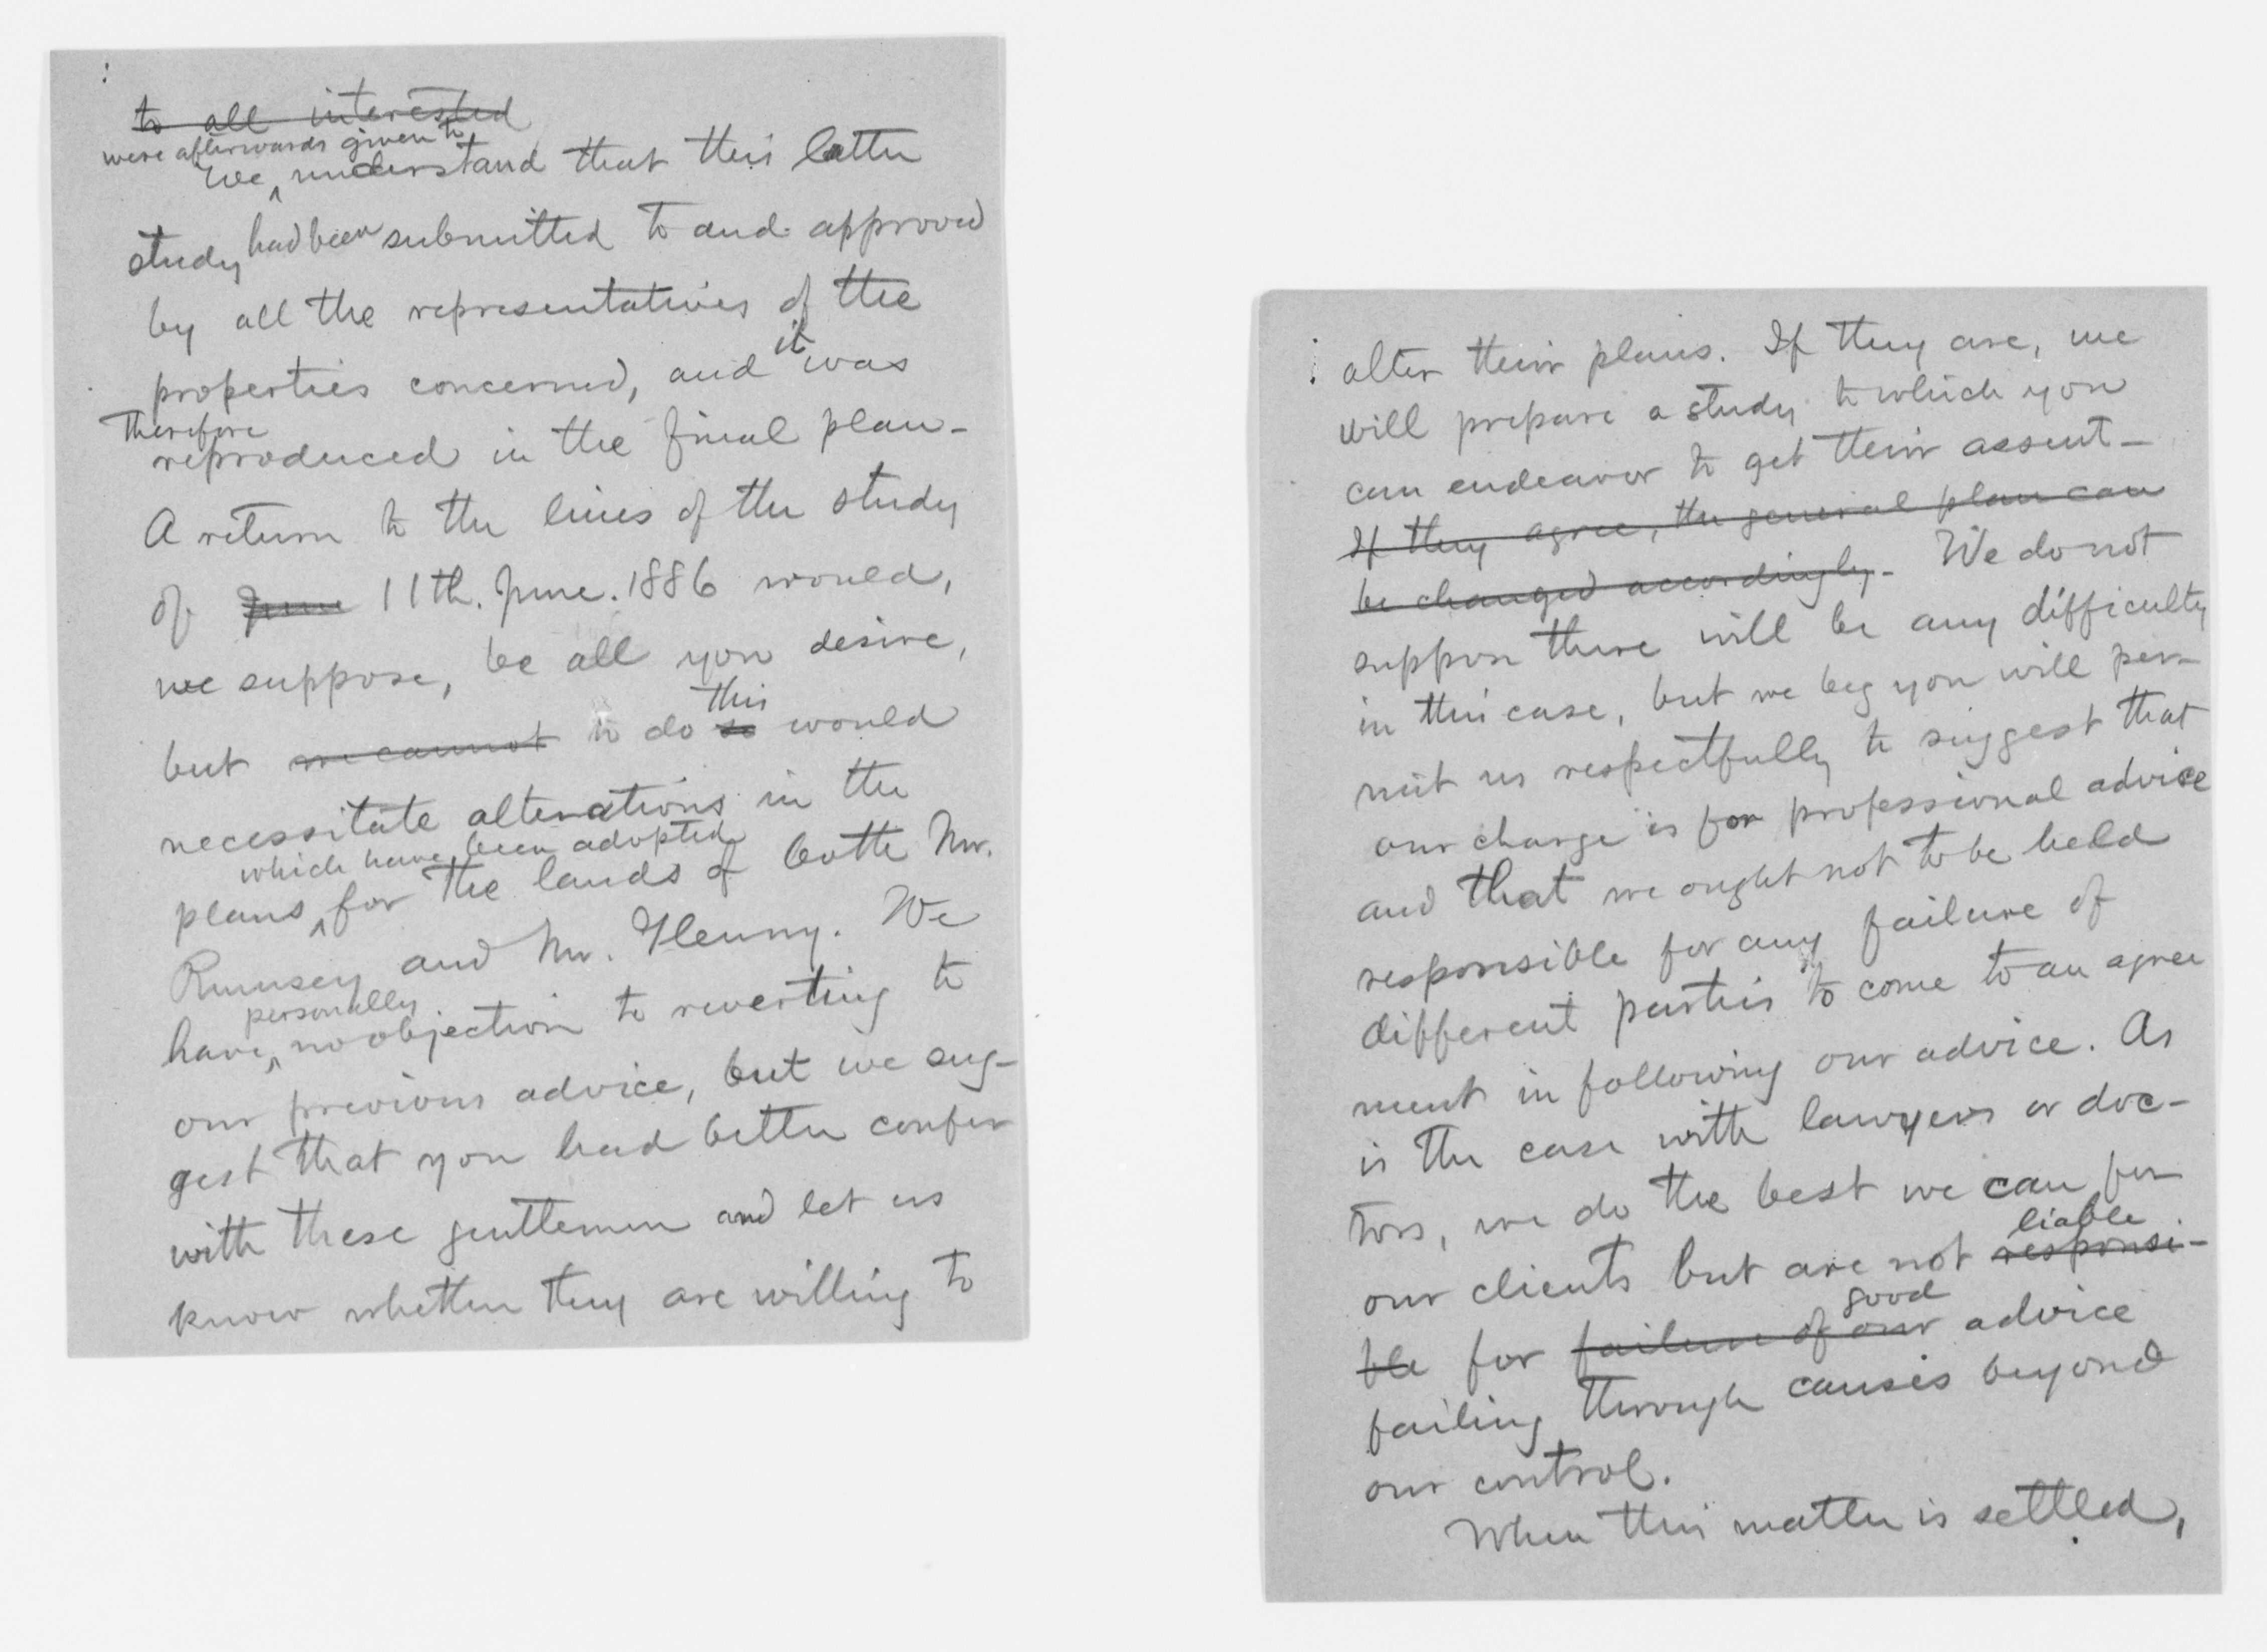 to all interested
were afterwards given to
We ^ understand that this latter
study had been submitted to and approved
by all the representatives of the
it
properties concerned, and was
therefore
reproduced in the final plan-
A return to the lines of the study
of June 11th. June. 1886 would,
we suppose, be all you desire,
this
but we cannot to do so would
necessitate alterations in the
which have been adopted
plans ^ for the lands of both Mr.
Rumsey and Mr. Glenny. We
personally
have ^ no objection to reverting to
our previous advice, but we sug-
gest that you had better confer
with these gentlemen and let us
know whether they are willing to
alter their plans. If they are, we
will prepare a study to which you
can endeavor to get their assent-
If they agree, the general plan can
be changed accordingly. - We do not
suppose there will be any difficulty
in this case, but we beg you will per-
mit us respectfully to suggest that
our charge is for professional advice
and that we ought not to be held
responsible for any failure of
different parties to come to an agree
ment in following our advice. As
is the case with lawyers or doc-
tors, we do the best we can for
liable
our clients but are not responsi-
good
ble for failure of our advice
failing through causes beyond
our control.
When this matter is settled,